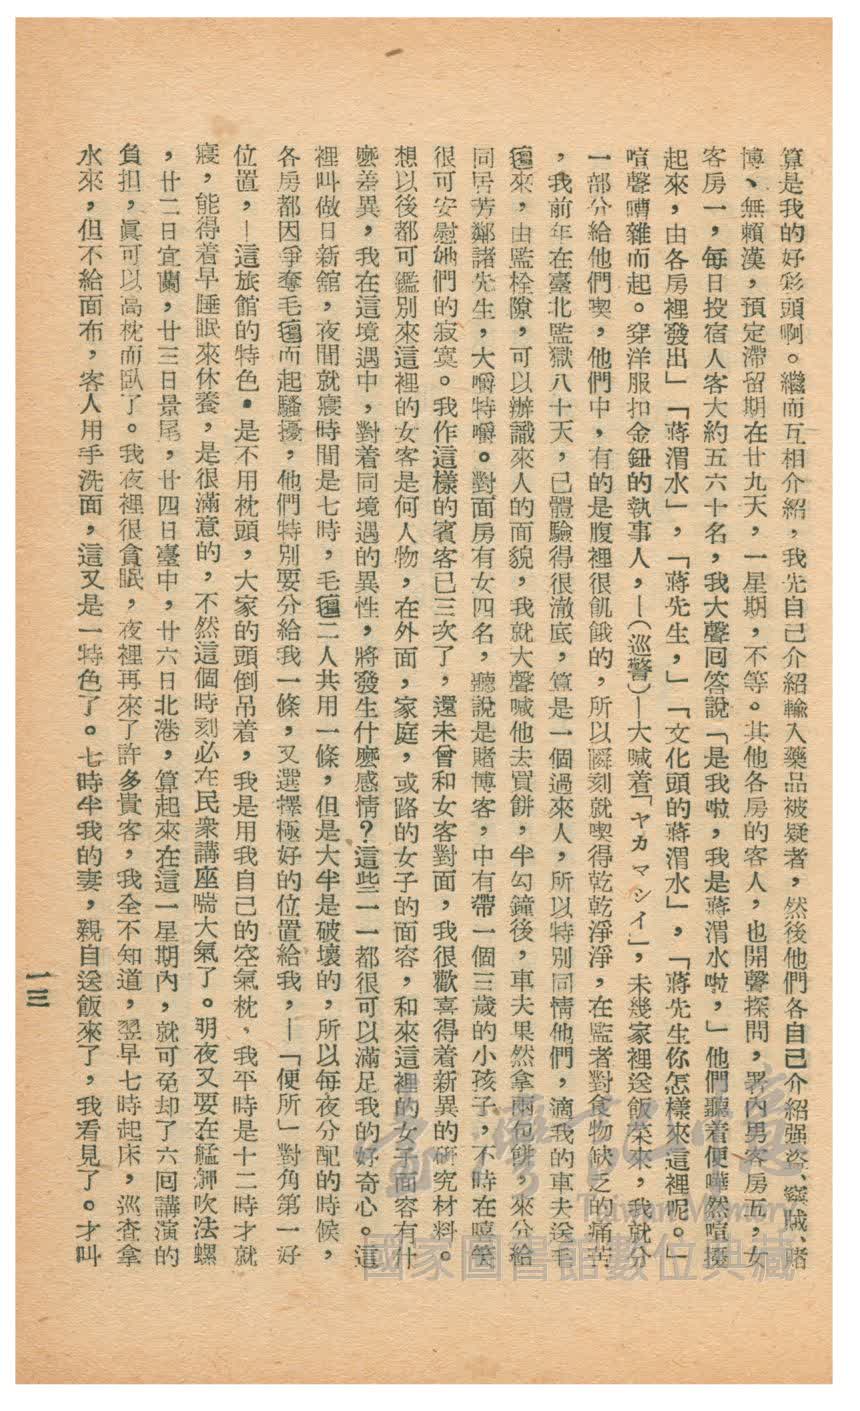 算是我的好彩頭啊。繼而互相介紹，我先自己介紹輸入藥品被疑者，然後他們各自己介紹强盜、竊賊、賭
博、無賴漢，預定滯留期在廿九天，一星期，不等。其他各房的客人，也開聲探問，署內男客房五，女
客房一，每日投宿人客大約五六十名，我大聲囘答說「是我啦，我是蔣渭水啦，」他們聽着便嘩然喧擾
起來，由各房裡發出」「蔣渭水」，「蔣先生，」「文化頭的蔣渭水」，「蔣先生你怎樣來這裡呢。」
喧聲嘈雜而起。穿洋服扣金鈕的執事人，—（巡警）—大喊着「ヤカマシイ」，未幾家裡送飯菜來，我就分
一部分給他們喫，他們中，有的是腹裡很飢餓的，所以瞬刻就喫得乾乾淨淨，在監者對食物缺乏的痛苦
，我前年在臺北監獄八十天，已體驗得很澈底，算是一個過來人，所以特別同情他們，滴我的車夫送毛
氊來，由監栓隙，可以辦識來人的面貌，我就大聲喊他去買餅，半勾鐘後，車夫果然拿兩包餅，來分給
同居芳鄰諸先生，大嚼特嚼。對面房有女四名，聽說是賭博客，中有帶一個三歲的小孩子，不時在嘻笑
很可安慰她們的寂寞。我作這樣的賓客已三次了，還未曾和女客對面，我很歡喜得着新異的研究材料。
想以後都可鑑別來這裡的女客是何人物，在外面，家庭，或路的女子的面容，和來這裡的女子面容有什
麼差異，我在這境遇中，對着同境遇的異性，將發生什麼感情？這些一一都很可以滿足我的好奇心。這
裡叫做日新舘，夜間就寢時間是七時，毛氊二人共用一條，但是大半是破壞的，所以每夜分配的時候，
各房都因爭奪毛氊而起騷擾，他們特別要分給我一條，又選擇極好的位置給我，—「便所」對角第一好
位置，—這旅館的特色•是不用枕頭，大家的頭倒吊着，我是用我自己的空氣枕、我平時是十二時才就
寢，能得着早睡眠來休養，是很滿意的，不然這個時刻必在民衆講座喘大氣了。明夜又要在艋舺吹法螺
，廿二日宜蘭，廿三日景尾，廿四日臺中，廿六日北港，算起來在這一星期內，就可免却了六囘講演的
負担，眞可以高枕而臥了。我夜裡很貪眠，夜裡再來了許多貴客，我全不知道，翌早七時起床，巡查拿
水來，但不給面布，客人用手洗面，這又是一特色了。七時半我的妻，親自送飯來了，我看見了。才叫
一三
臺灣記憶
Taiwan Memory
國家圖書館數位典藏